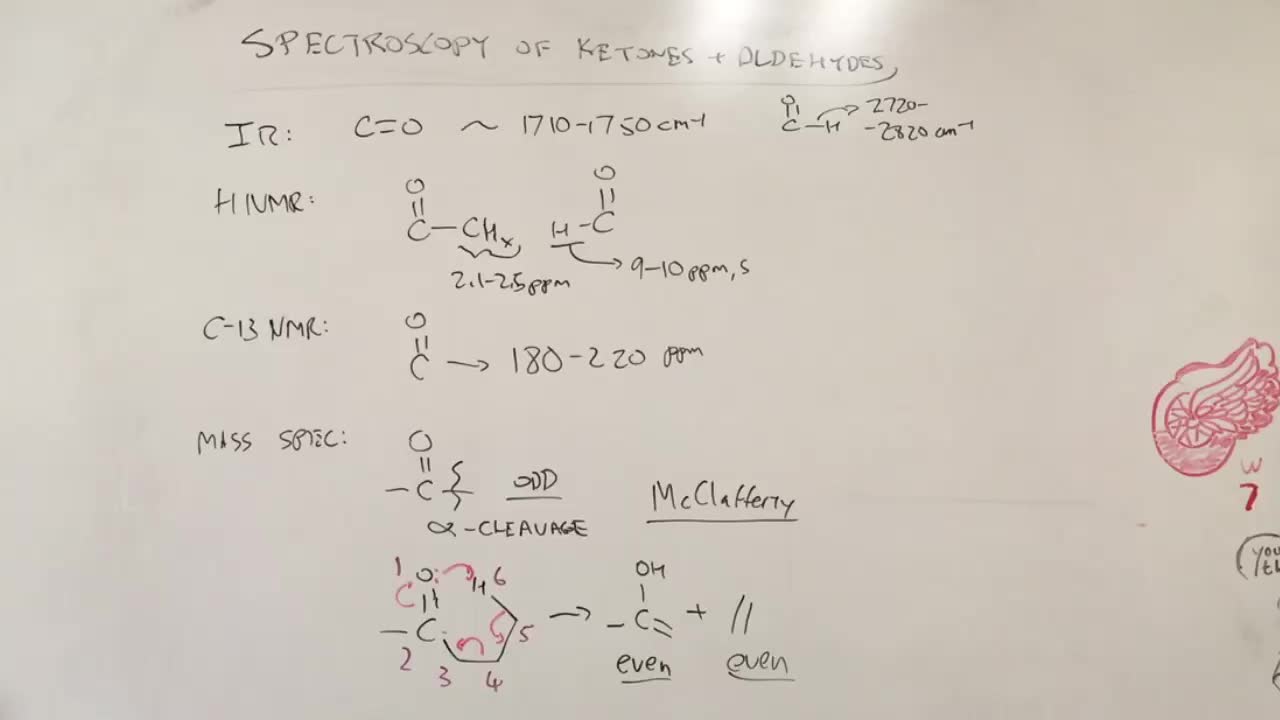 SPECTROSCOPY OF KETONES + ALDEHYDES
IR: C=O ~ 1710-1750 cm-1
O
C-H 2720-
-2820 cm-1
H NMR:
O
C-CHx
2.1-2.5 ppm
O
H-C
9-10 ppm, s
C-13 NMR:
O
C → 180-220 ppm
MASS SPEC:
O
-C ODD
α-CLEAVAGE
McClafferty
1 O: H 6
-C
2 3 4 5
→
OH
-C= + //
even even
W
7
you